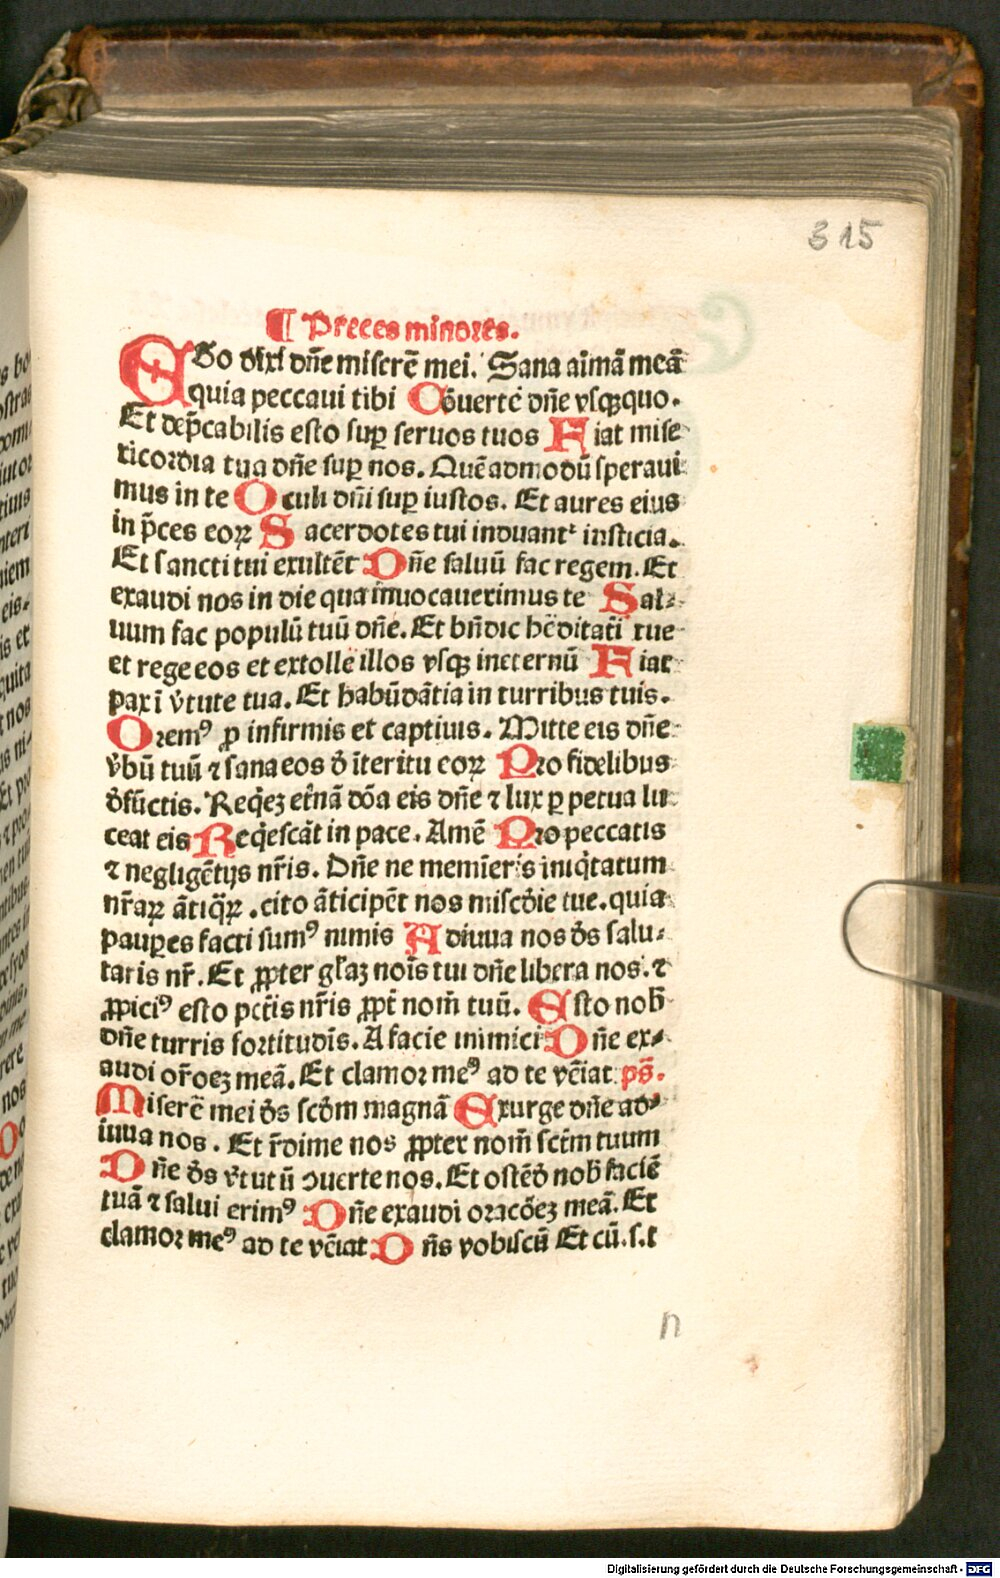 315
¶ Preces minores.
EGo dixi dñe miserē mei. Sana aīmā meā
quia peccaui tibi Cōuerte dñe vsqꝫquo.
Et dep̄cabilis esto suꝑ seruos tuos Fiat mise
ricordia tua dñe suꝑ nos. Quēadmodū speraui
mus in te Oculi dñi suꝑ iustos. Et aures eius
in p̄ces eoꝝ Sacerdotes tui induant᷑ iusticia.
Et sancti tui exultēt Dñe saluū fac regem. Et
exaudi nos in die qua inuocauerimus te Sal⸗
uum fac populū tuū dñe. Et bñdic hēditati tue
et rege eos et extolle illos vsqꝫ ineternū Fiat
pax ī v̄tute tua. Et habūdātia in turribus tuis.
Oremꝰ ꝓ infirmis et captiuis. Mitte eis dñe
v̄bū tuū ⁊ sana eos d̄ īteritu eoꝝ Pro fidelibus
d̄fūctis. Req̄eꝫ et̄nā dōa eis dñe ⁊ lux ꝑpetua lu
ceat eis Req̄escāt in pace. Amē Pro peccatis
⁊ negligētijs nr̄is. Dñe ne memīeris iniq̄tatum
nr̄aꝝ ātiq̄ꝝ .cito āticipēt nos misc̄die tue. quia
pauꝑes facti sumꝰ nimis Adiuua nos d̄s salu⸗
taris nr̄. Et ꝓpter gl̄aꝫ noīs tui dñe libera nos. ⁊
ꝓpiciꝰ esto pct̄is nr̄is ꝓpt̄ nom̄ tuū. Esto nob̄
dñe turris fortitudīs. A facie inimici Dñe ex⸗
audi or̄oeꝫ meā. Et clamor meꝰ ad te vēiat ps̄.
Miserē mei d̄s scd̄m magnā Exurge dñe ad⸗
iuua nos. Et r̄dime nos ꝓpter nom̄ sct̄m tuum
Dñe d̄s v̄tutū ꝯuerte nos. Et ostēd̄ nob̄ faciē
tuā ⁊ salui erimꝰ Dñe exaudi oracōeꝫ meā. Et
clamor meꝰ ad te vēiat Dñs vobiscū Et cū.s.t
n
Digitalisierung gefördert durch die Deutsche Forschungsgemeinschaft - DFG